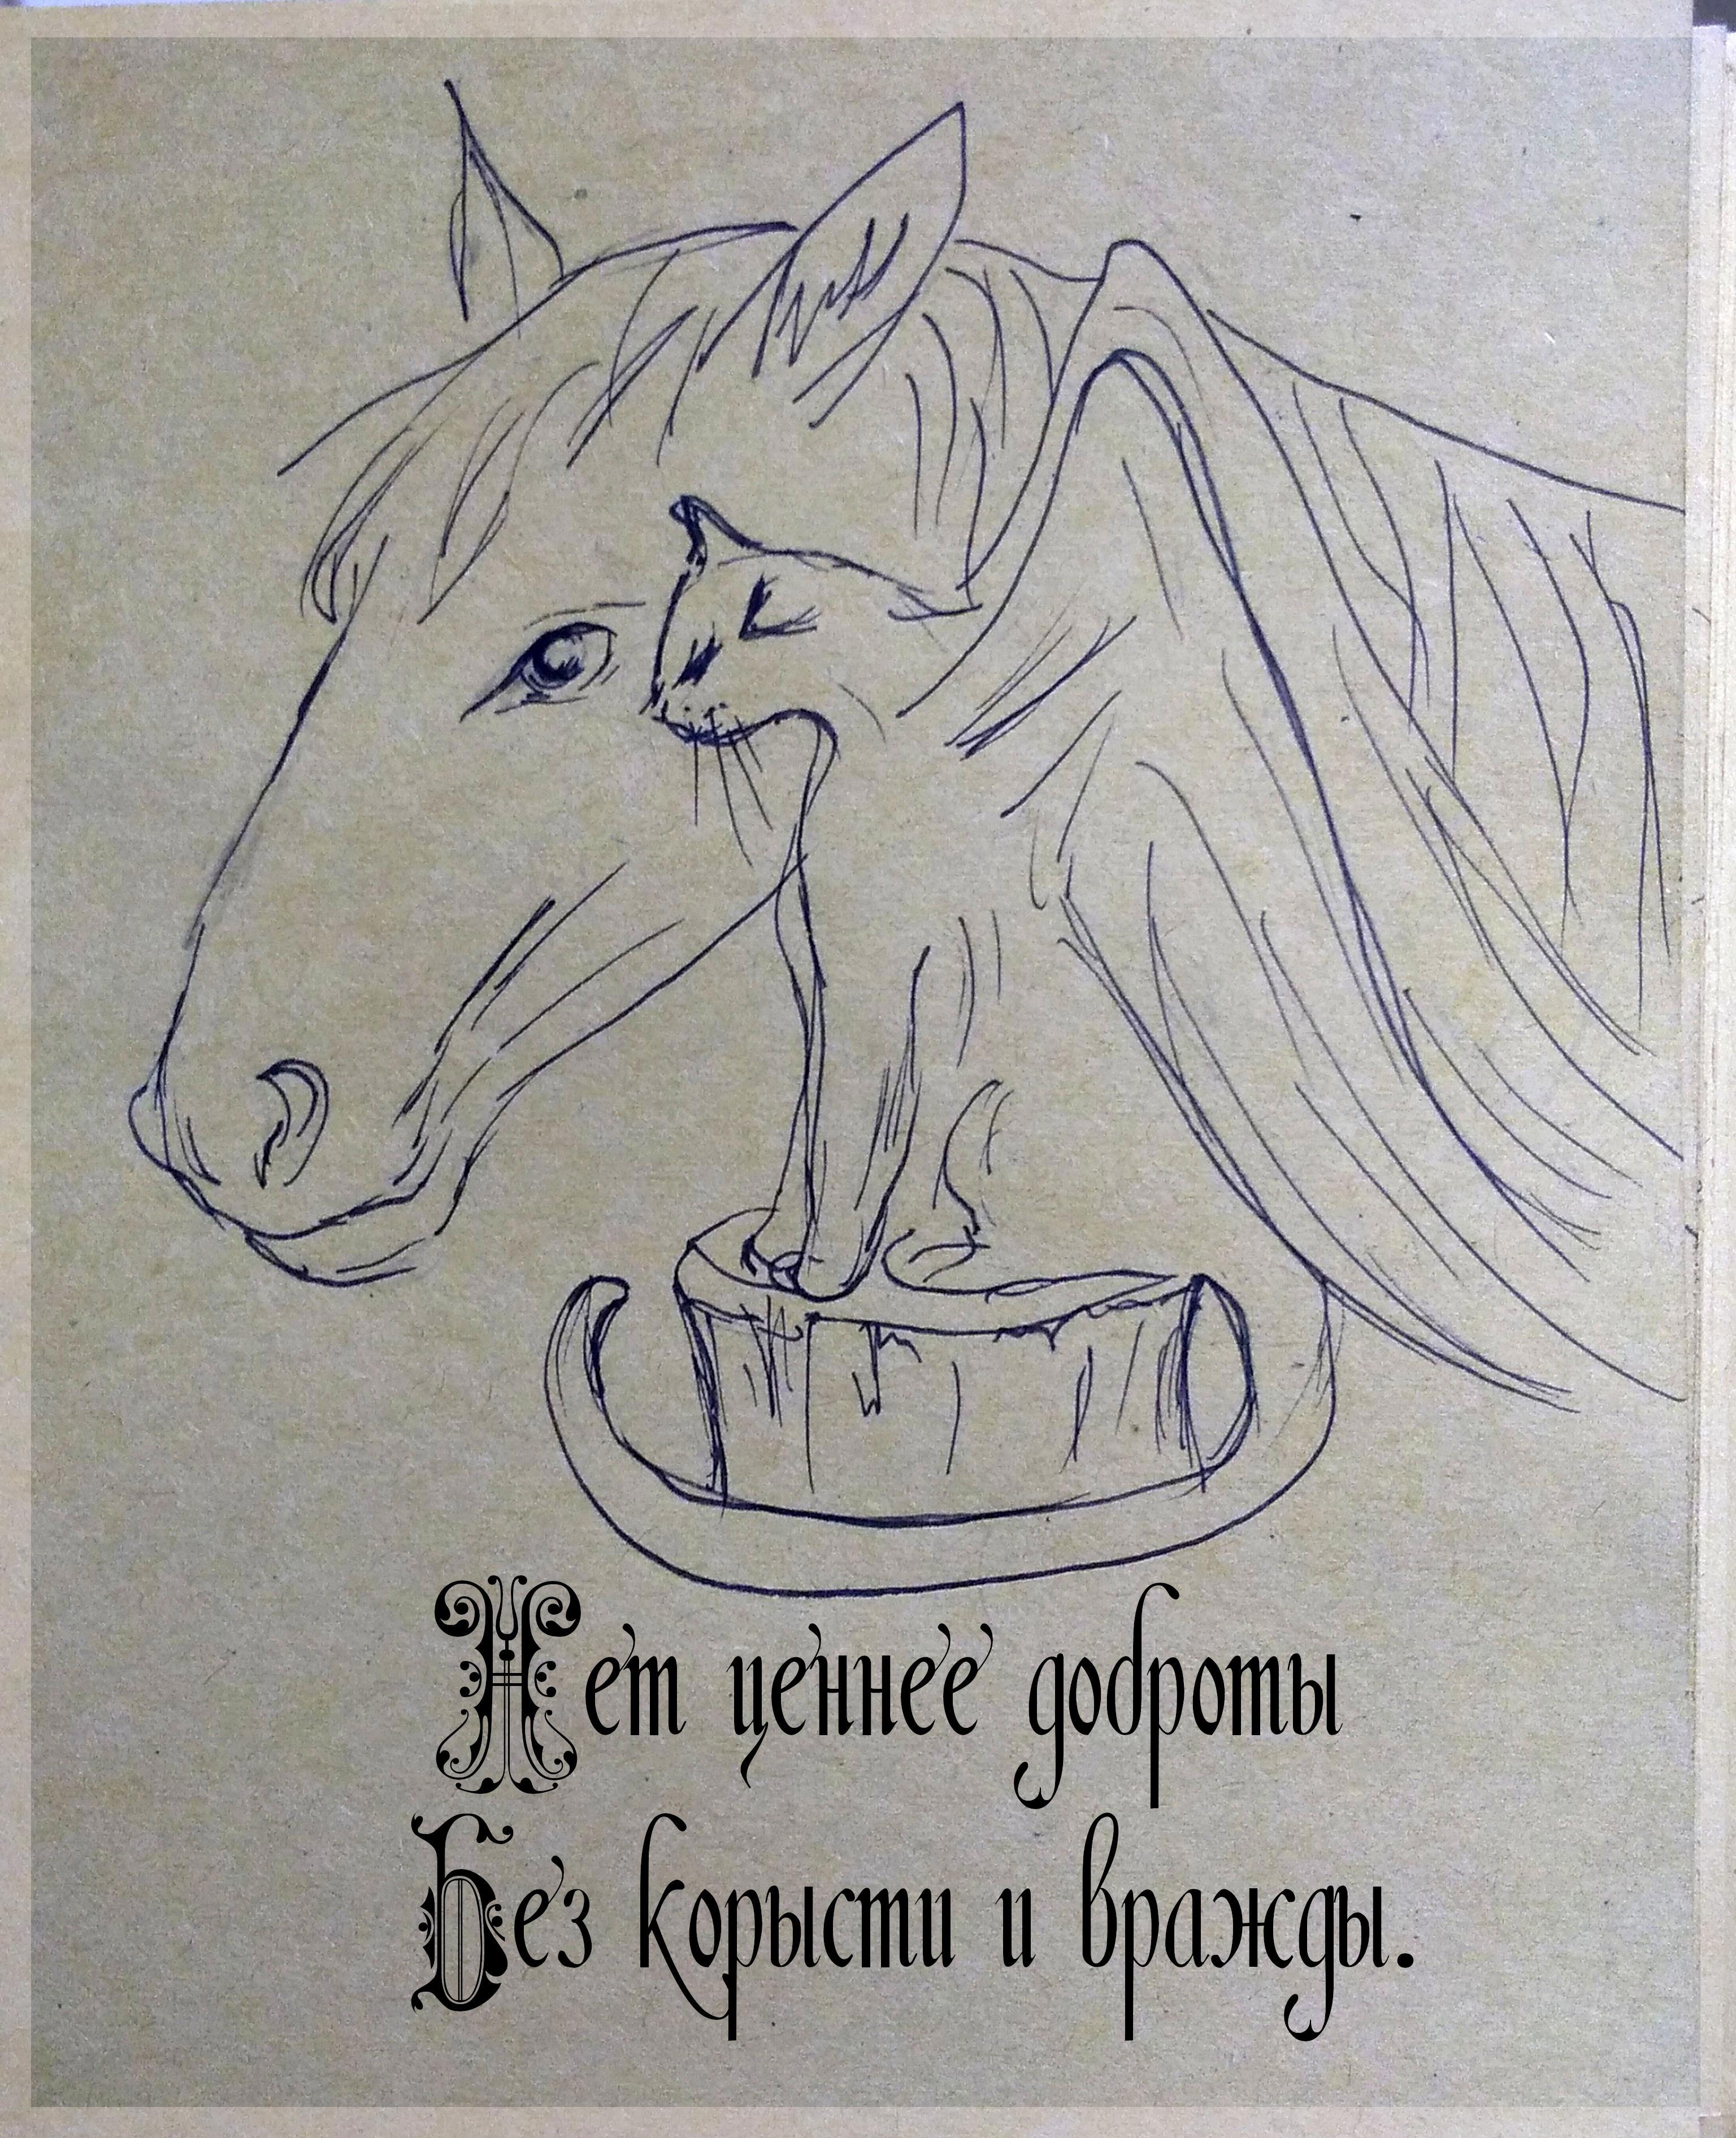 Нет ценнее доброты
Без корысти и вражды.